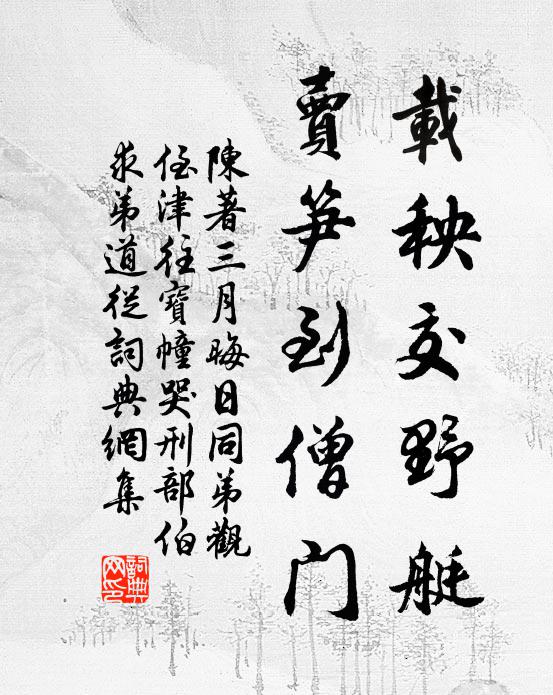 載秧交野艇
賣笋到僧門
陳著三月晦日同弟觀
侄津往寶幢哭刑部伯
求弟道從詞典網集
詞典
网印